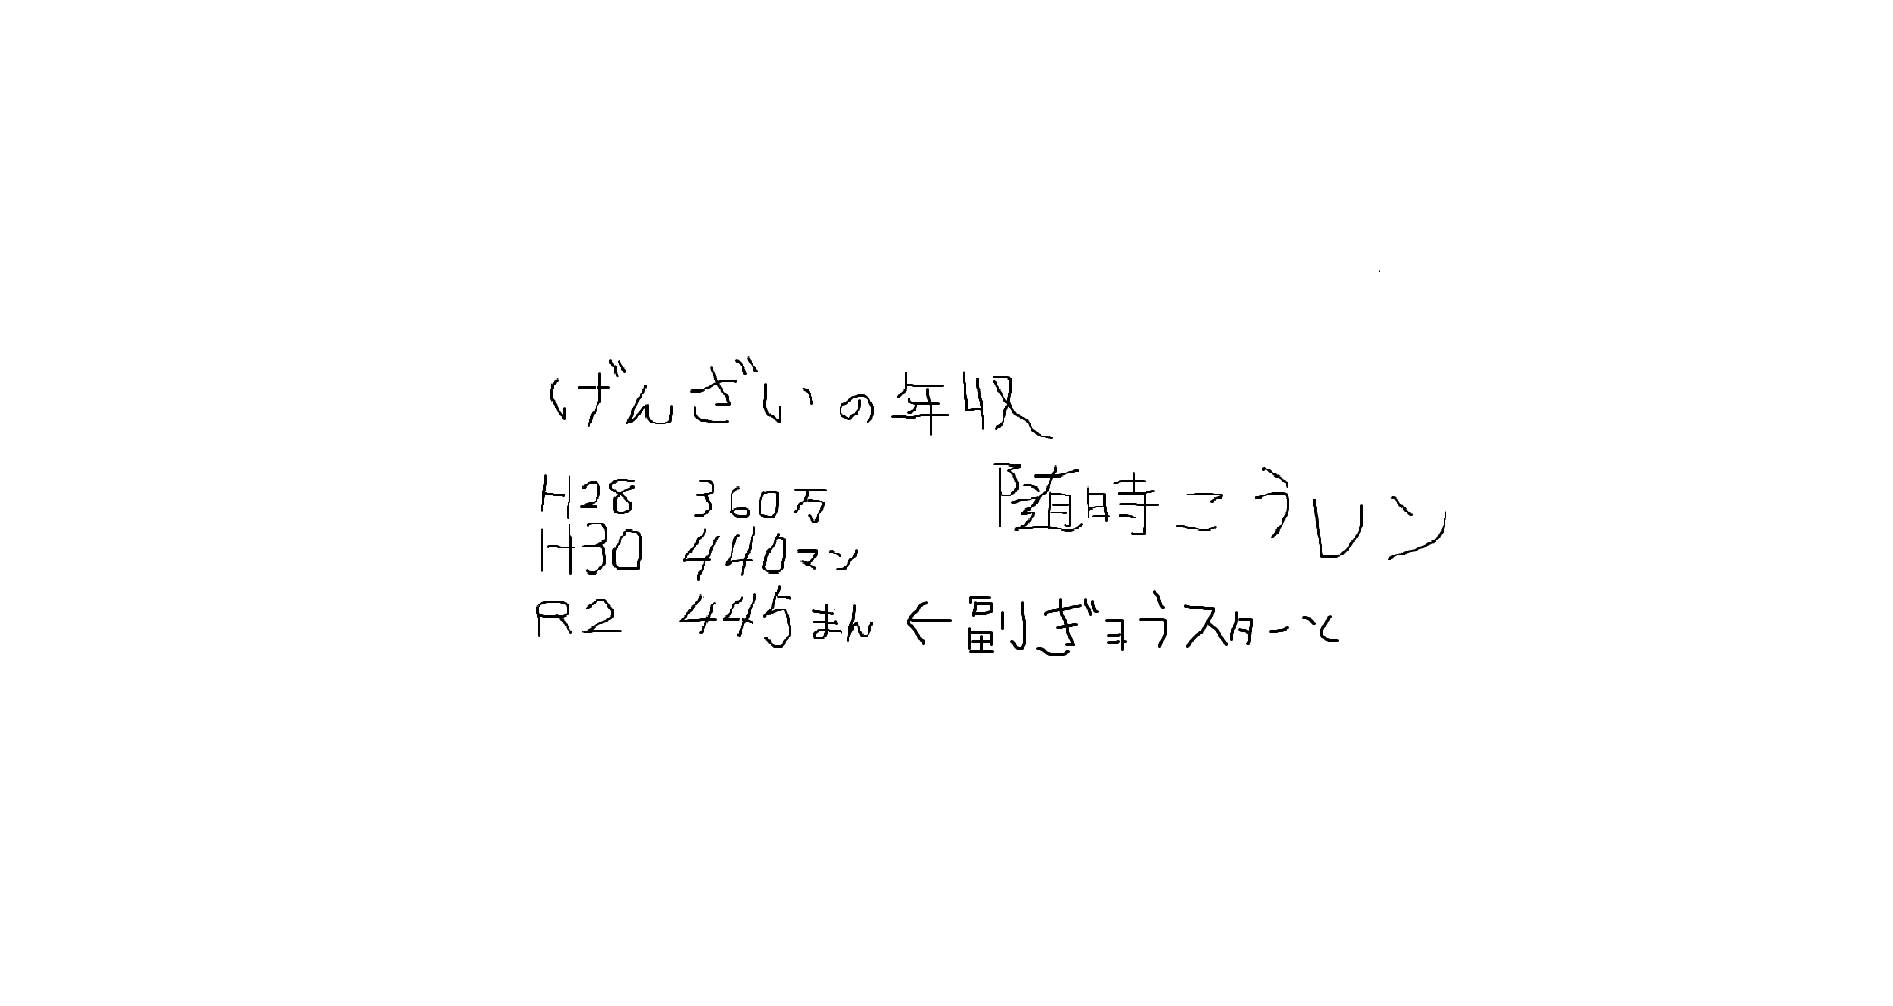 げんざいの年収
H28 360万 随時こうレン
H30 440マン
R2 445まん ←副ぎョうスターと